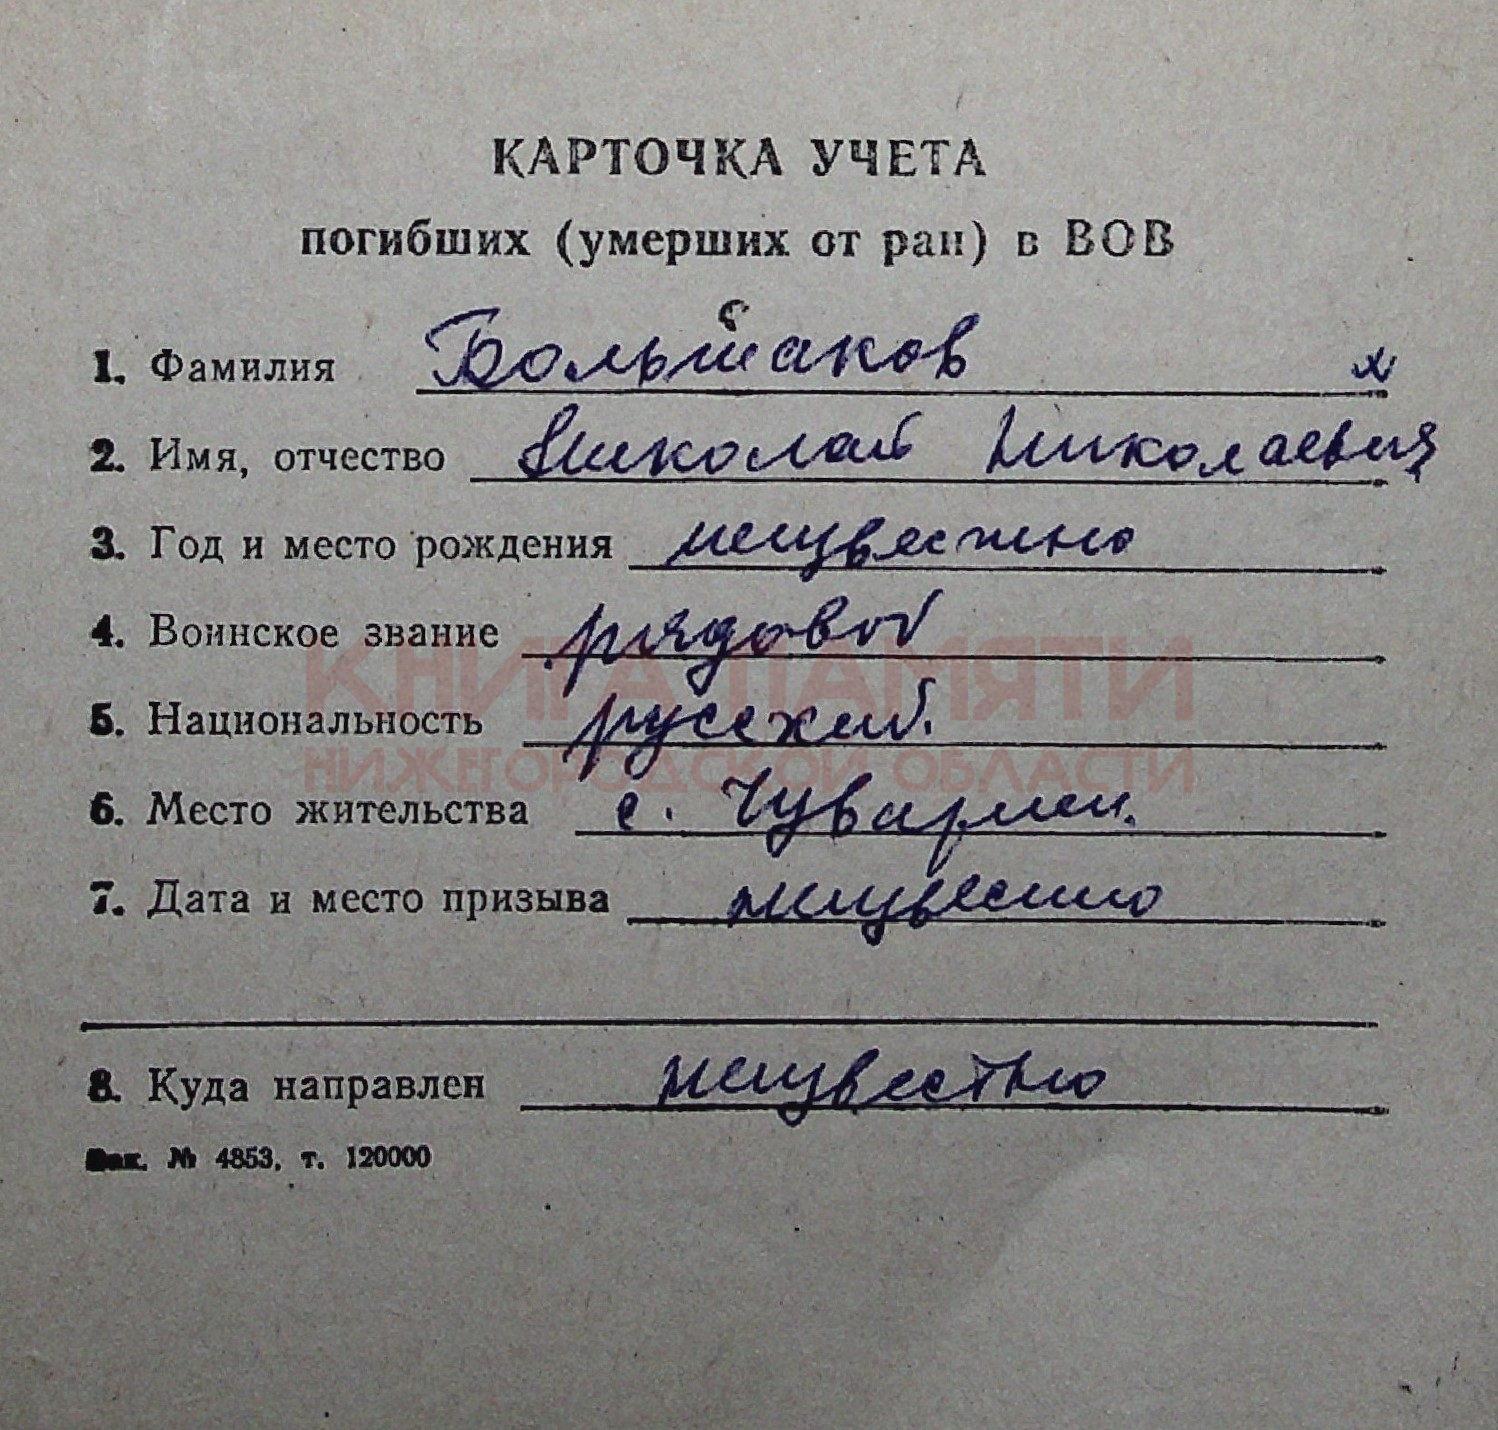 КАРТОЧКА УЧЕТА
погибших (умерших от ран) в ВОВ
1. Фамилия Большаков
2. Имя, отчество Николай Николаевич
3. Год и место рождения неизвестно
4. Воинское звание рядовой
5. Национальность русский.
КНИГА ПАМЯТИ
НИЖЕГОРОДСКОЙ ОБЛАСТИ
6. Место жительства с. Чуварлеи.
7. Дата и место призыва неизвестно
8. Куда направлен неизвестно
Зак. № 4853, т. 120000